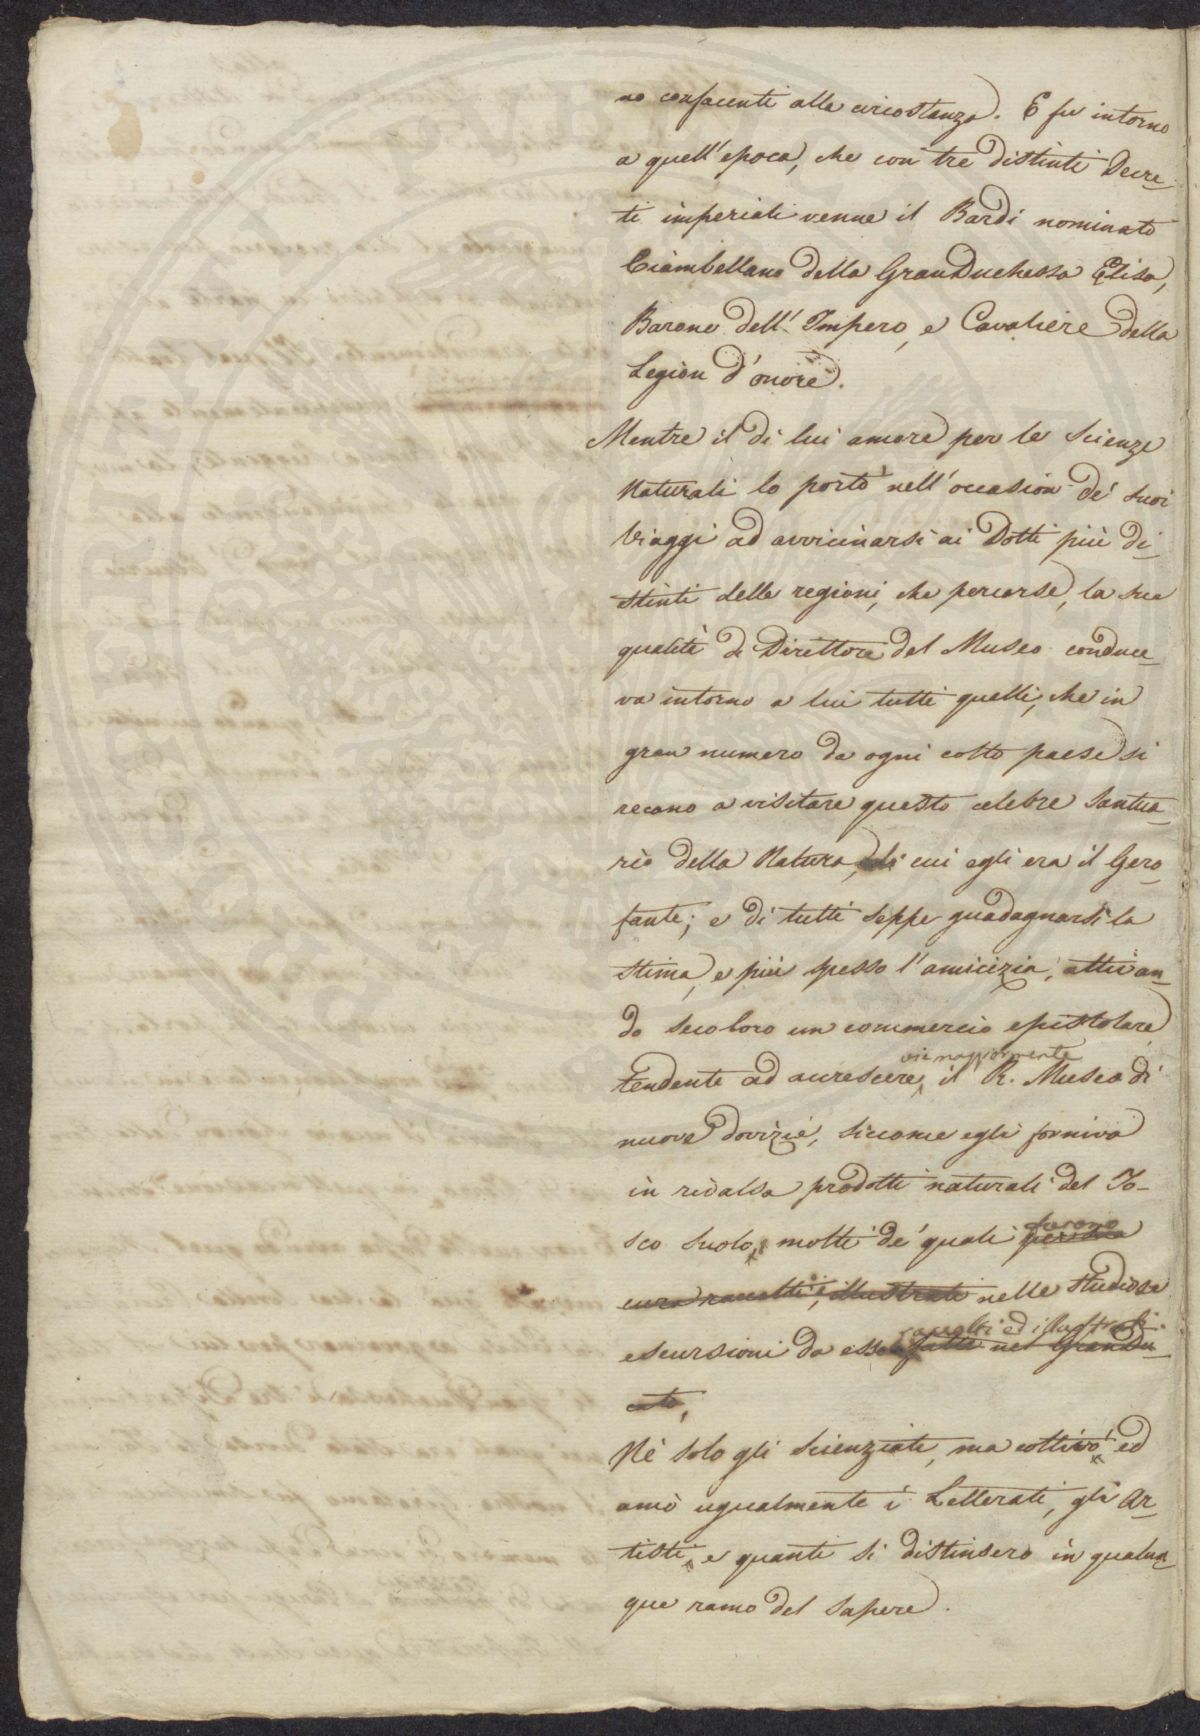 no confacenti alle circostanze. E fu intorno
a quell'epoca, che con tre distinti Decre-
ti imperiali venne il Bardi nominato
Ciambellano della GranDuchessa Elisa,
Barone dell'Impero, e Cavaliere della
Legion d'onore.
Mentre il di lui amore per le Scienze
Naturali lo portò nell'occasion de' suoi
Viaggi ad avvicinarsi ai Dotti più di-
stinti delle regioni, che percorse, la sua
qualità di Direttore del Museo conduce-
va intorno a lui tutti quelli, che in
gran numero da ogni colto paese si
recano a visitare questo celebre Santua-
rio della Natura, di cui egli era il Gero-
fante; e di tutti seppe guadagnarsi la
stima, e più spesso l'amicizia, attivan-
do seco loro un commercio epistolare
viemaggiormente
tendente ad accrescere il R. Museo di
nuove dovizie, siccome egli forniva
in rivalsa prodotti naturali del To-
furono
sco suolo, molti de' quali per sua
cura raccolti, e illustrati nelle studiose
raccolti ed illustrati.
escursioni da esso fatte nel Grandu-
cato,
Nè solo gli Scienziati, ma coltivò ed
amò ugualmente i Letterati, gli Ar-
tisti, e quanti si distinsero in qualun-
que ramo del Sapere.